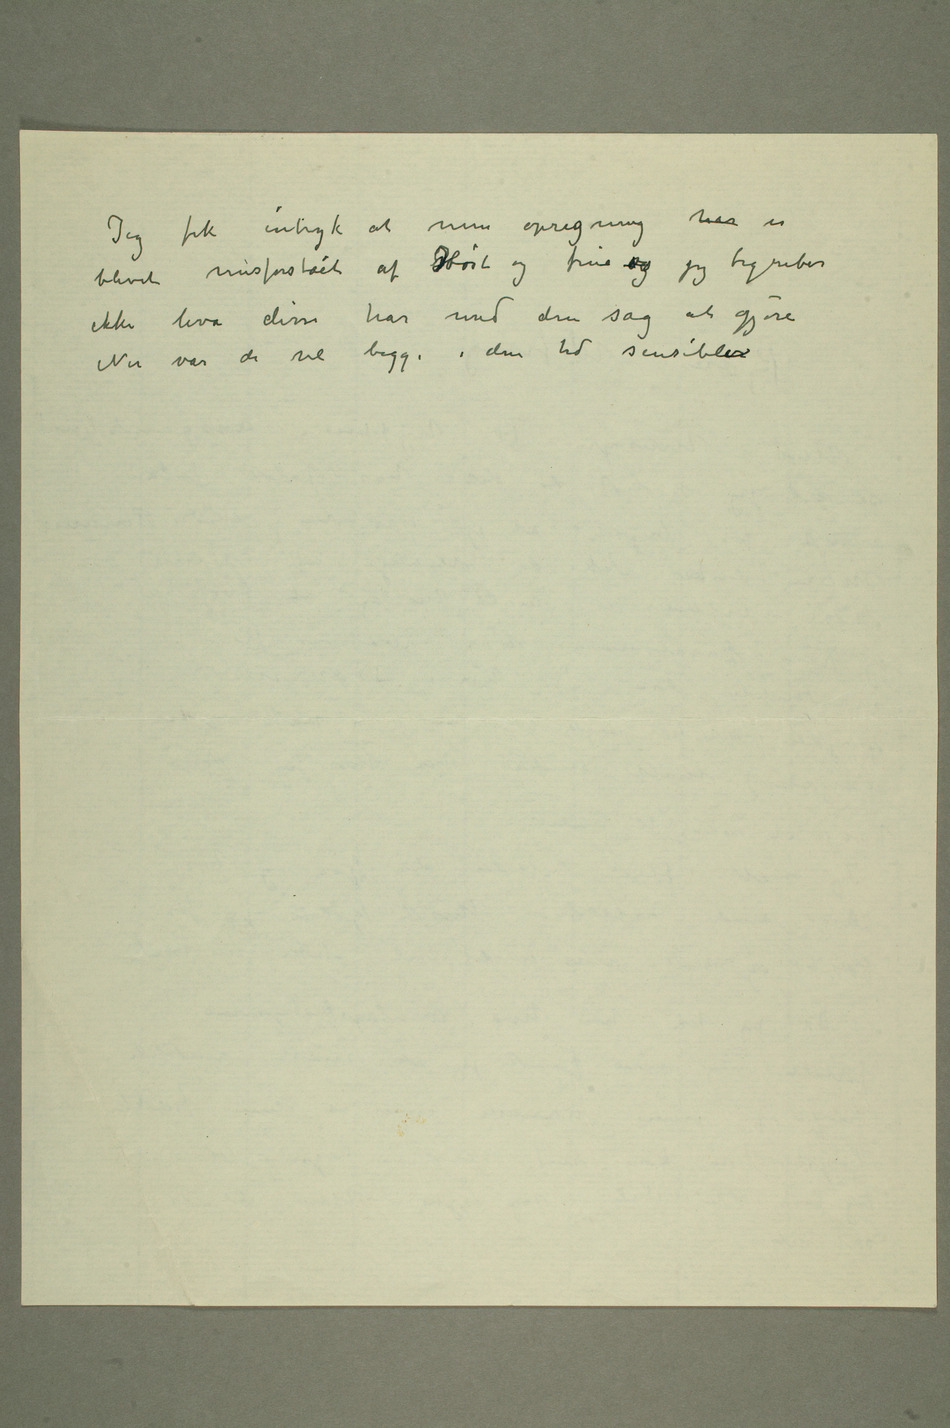 Jeg fik intryk at min opregning har er
blevet misforstået af Høst og frue og jeg begriber
ikke hva disse har med den sag at gjøre
Nei var de vel begge i den tid sensible